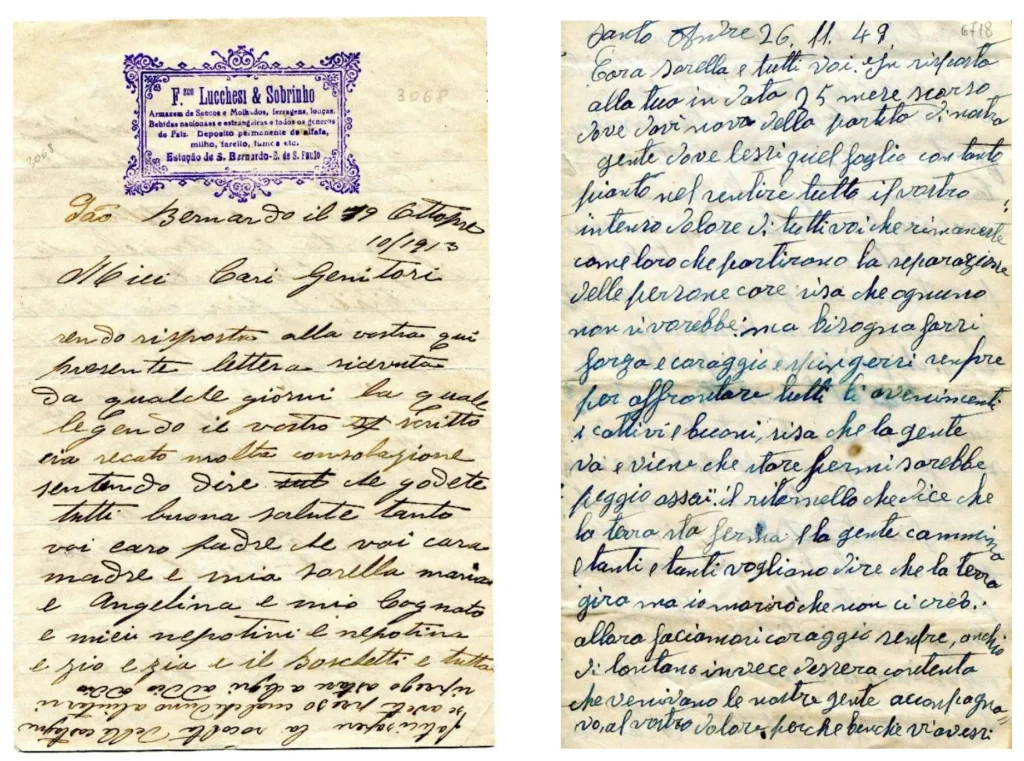 F.sco Lucchesi & Sobrinho
Armazem de Seccos e Molhados, ferragens, louças,
Bebidas nacionaes e estrangeiras e todos os generos
do Paiz. Deposito permanente de alfafa,
milho, farello, fumos etc.
Estação de S. Bernardo-E. de S. Paulo
3068
2068
São Bernardo il 19 Ottopre
10/1913
Miei Cari Genitori
rendo risposta alla vostra qui
presente lettera riavuta
da qualche giorni la quale
legendo il vostro scritto
cia recato molta consolazione
sentendo dire che godete
tutti buona salute tanto
voi caro padre che voi cara
madre e mia sorella maria
e Angelina e mio Cognato
e miei nepotini e nepotina
e zio e zia e il Boschetti e tutta
6718
Santo Andre 26. 11. 49
Cara sorella e tutti voi. In risposta
alla tua in data 25 mese scorso
dove dovi nova della partita di nostra
gente dove lessi quel foglio con tanto
pianto nel sentire tutto il vostro
intenso dolore di tutti voi che rimaneste
come loro che partirono la separazione
delle persone care si sa che ognuno
non si vorebbe: ma bisogna farsi
forza e coraggio e spingersi senpre
per affrontare tutti li avenimenti
e cattivi e buoni, si sa che la gente
va e viene che stare fermi sarebbe
peggio assai: il ritornello che dice che
la terra sta ferma e la gente cammina
e tanti e tanti vogliano dire che la terra
gira ma io moriro che non ci credo.
allora faciamosi coraggio senpre, anchio
di lontano invece dessera contenta
che venivano le nostre gente accompagna-
vo, al vostro dolore, perche benche vi avessi